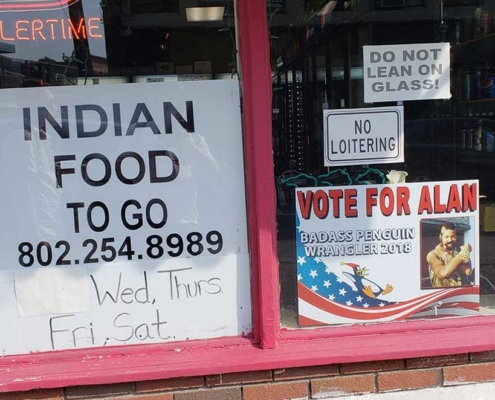 LERTIME
INDIAN
FOOD
TO GO
802.254.8989
Wed, Thurs.
Fri, Sat.
DO NOT
LEAN ON
GLASS!
NO
LOITERING
VOTE FOR ALAN
BADASS PENGUIN
WRANGLER 2018